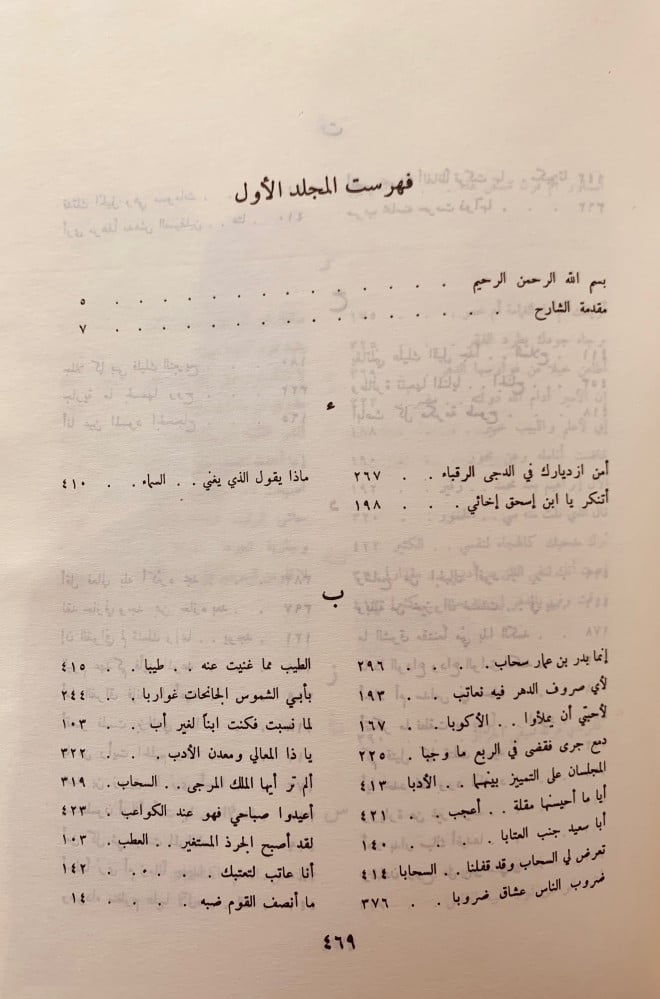 فهرست المجلد الأول
بسم الله الرحمن الرحيم . . . . . . . . . . . . . ٥
مقدمة الشارح . . . . . . . . . . . . . . ٧
ء
أمن ازديارك في الدجى الرقباء . . ٢٦٧
أتنكر يا ابن إسحق إخائي . . . ١٩٨
ماذا يقول الذي يغني . . السماء . . ٤١٠
ب
إنما بدر بن عمار سحاب . . . ٢٩٦
لأي صروف الدهر فيه نعاتب . ١٩٣
لأحبتي أن يملأوا . . الأكوبا . . ١٦٧
دمع جرى فقضى في الربع ما وجبا . ٢٢٥
المجلسان على التمييز بينهما . . الأدبا ٤١٣
أيا ما أحيسنها مقلة . . أعجب . . ٤٢١
أبا سعيد جنب العتابا . . . . ١٤٠
تعرض لي السحاب وقد قفلنا . . السحابا ٤١٤
ضروب الناس عشاق ضروبا . . ٣٧٦
الطيب مما غنيت عنه . . طيبا . . ٤١٥
بأبي الشموس الجانحات غواربا . ٢٤٤
لما نسبت فكنت ابناً لغير أب . . ١٠٣
يا ذا المعالي ومعدن الأدب . . . ٣٢٢
ألم تر أيها الملك المرجى . . السحاب . ٣١٩
أعيدوا صباحي فهو عند الكواعب . ٤٢٣
لقد أصبح الجرذ المستغير . . العطب . ١٠٣
أنا عاتب لتعتبك . . . ٥ . . ١٤٢
ما أنصف القوم ضبه . . . . ١٤
٤٦٩